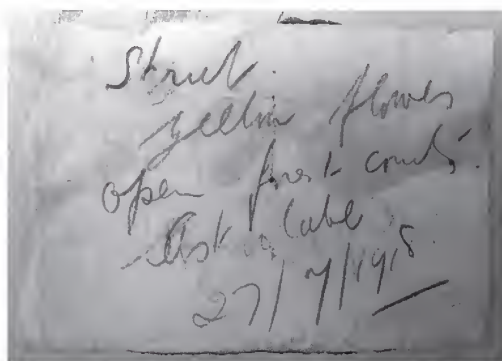 Shrub.
yellow flowers
open forest country
Astrolabe
27/7/1918